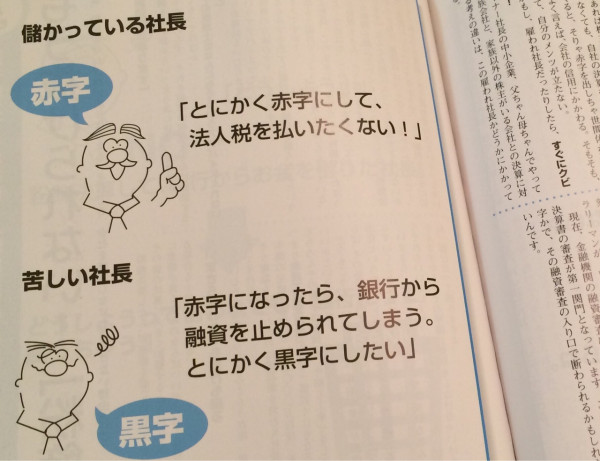 儲かっている社長
赤字
「とにかく赤字にして、
法人税を払いたくない！」
苦しい社長
「赤字になったら、銀行から
融資を止められてしまう。
とにかく黒字にしたい」
黒字
なくても、自社の決算
ると、そりゃ赤字を出しちゃ世間体
よく言えば、会社の信用にかかわる。そもそも、
て、自分のメンツが立たない。
もし、雇われ社長だったりしたら、すぐにクビ
ナー社長の中小企業、父ちゃん母ちゃんでやって
族会社と、家族以外の株主がいる会社との決算に対
る考えの違いは、この雇われ社長かどうかにかかって
ラリーマンが
現在、金融機関の融資審査の
決算書の審査が第一関門となっています。
字かで、その融資審査の入り口で断わられるかもしれ
いんです。